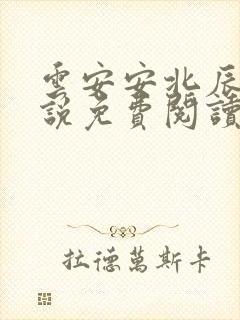 雲安安北辰
說免費閱讀
拉德萬斯卡